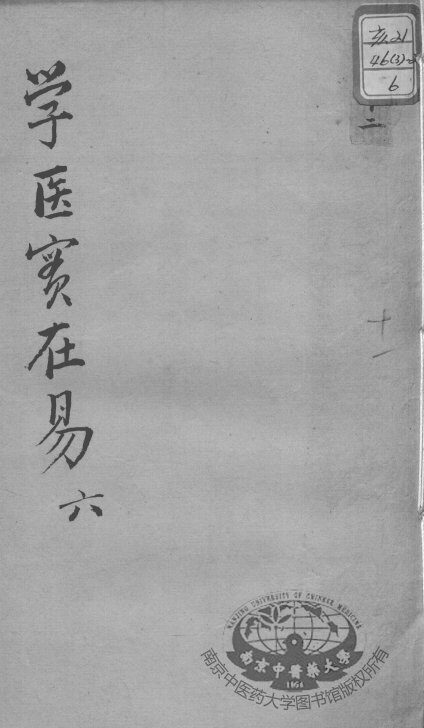 学医实在易 六
46(3)-2
6
二
十一
NANJING UNIVERSITY OF CHINESE MEDICINE
南京中醫藥大學
1954
南京中医药大学图书馆版权所有